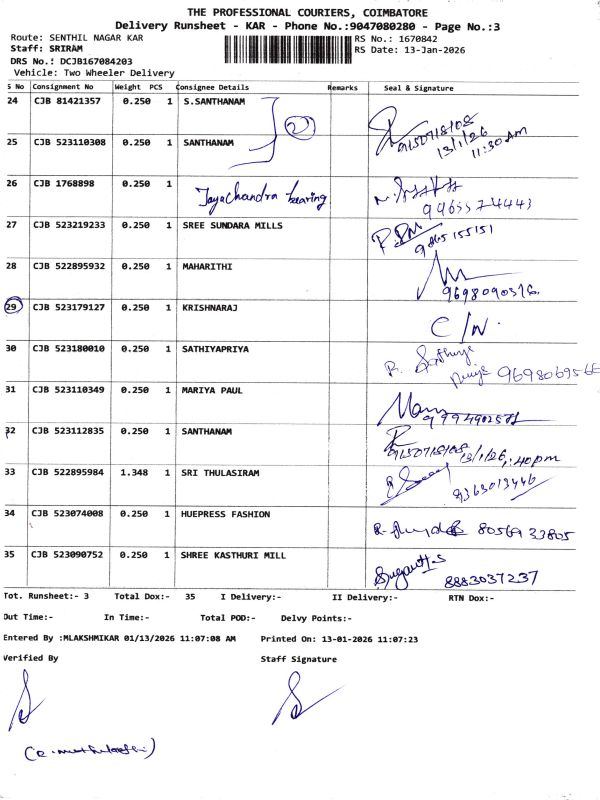 THE PROFESSIONAL COURIERS, COIMBATORE
Delivery Runsheet - KAR - Phone No.:9047080280 - Page No.:3
Route: SENTHIL NAGAR KAR RS No.: 1670842
Staff: SRIRAM RS Date: 13-Jan-2026
DRS No.: DCJB167084203
Vehicle: Two Wheeler Delivery
S No Consignment No Weight PCS Consignee Details Remarks Seal & Signature
24 CJB 81421357 0.250 1 S.SANTHANAM
2
9150718108
13/1/26
11:30 AM
25 CJB 523110308 0.250 1 SANTHANAM
26 CJB 1768898 0.250 1 Jayachandra bearing
27 CJB 523219233 0.250 1 SREE SUNDARA MILLS 9865 155151
28 CJB 522895932 0.250 1 MAHARITHI
29 CJB 523179127 0.250 1 KRISHNARAJ C/N.
30 CJB 523180010 0.250 1 SATHIYAPRIYA R. Sathiya
31 CJB 523110349 0.250 1 MARIYA PAUL
32 CJB 523112835 0.250 1 SANTHANAM 9150718108
13/1/26,
33 CJB 522895984 1.348 1 SRI THULASIRAM 9363013446
34 CJB 523074008 0.250 1 HUEPRESS FASHION 80569 33805
35 CJB 523090752 0.250 1 SHREE KASTHURI MILL Suganthi.S
8883037237
Tot. Runsheet:- 3 Total Dox:- 35 I Delivery:- II Delivery:- RTN Dox:-
Out Time:- In Time:- Total POD:- Delvy Points:-
Entered By :MLAKSHMIKAR 01/13/2026 11:07:08 AM Printed On: 13-01-2026 11:07:23
Verified By Staff Signature